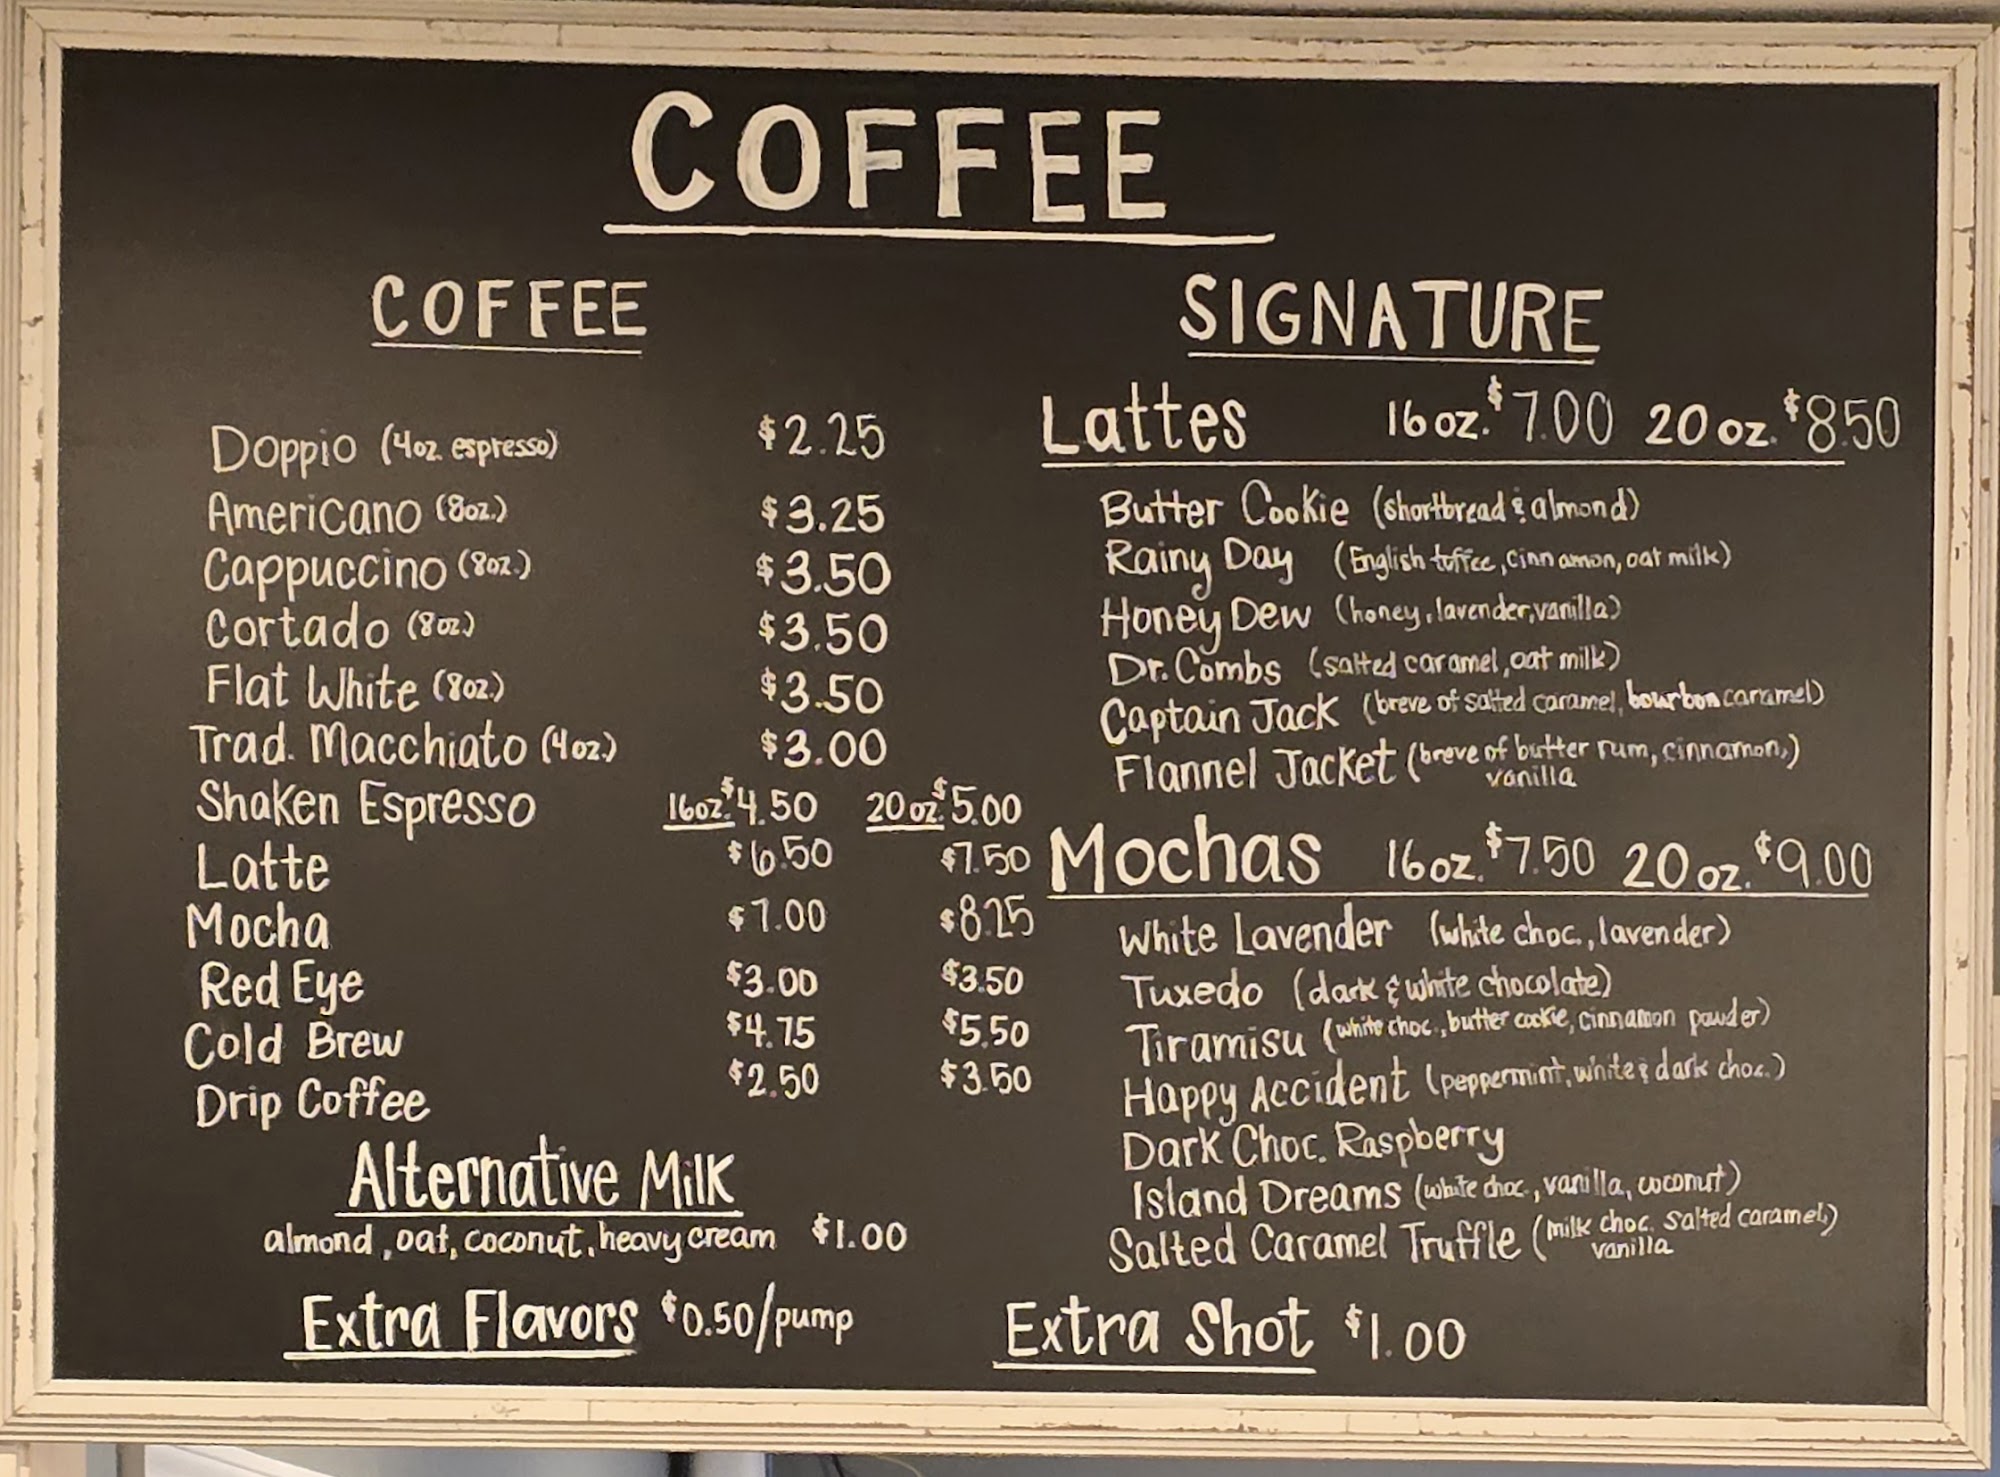 COFFEE
COFFEE
Doppio (4oz. espresso) $2.25
Americano (8oz.) $3.25
Cappuccino (8oz.) $3.50
Cortado (8oz.) $3.50
Flat White (8oz.) $3.50
Trad. Macchiato (4oz.) $3.00
Shaken Espresso 16oz. $4.50 20oz. $5.00
Latte $6.50 $7.50
Mocha $7.00 $8.25
Red Eye $3.00 $3.50
Cold Brew $4.75 $5.50
Drip Coffee $2.50 $3.50
Alternative Milk
almond, oat, coconut, heavy cream $1.00
Extra Flavors $0.50/pump
SIGNATURE
Lattes 16oz. $7.00 20oz. $8.50
Butter Cookie (shortbread & almond)
Rainy Day (English toffee, cinnamon, oat milk)
Honey Dew (honey, lavender, vanilla)
Dr. Combs (salted caramel, oat milk)
Captain Jack (breve of salted caramel, bourbon caramel)
Flannel Jacket (breve of butter rum, cinnamon,)
vanilla
Mochas 16oz. $7.50 20oz. $9.00
White Lavender (white choc., lavender)
Tuxedo (dark & white chocolate)
Tiramisu (white choc., butter cookie, cinnamon powder)
Happy Accident (peppermint, white & dark choc.)
Dark Choc. Raspberry
Island Dreams (white choc., vanilla, coconut)
Salted Caramel Truffle (milk choc. salted caramel,)
vanilla
Extra Shot $1.00